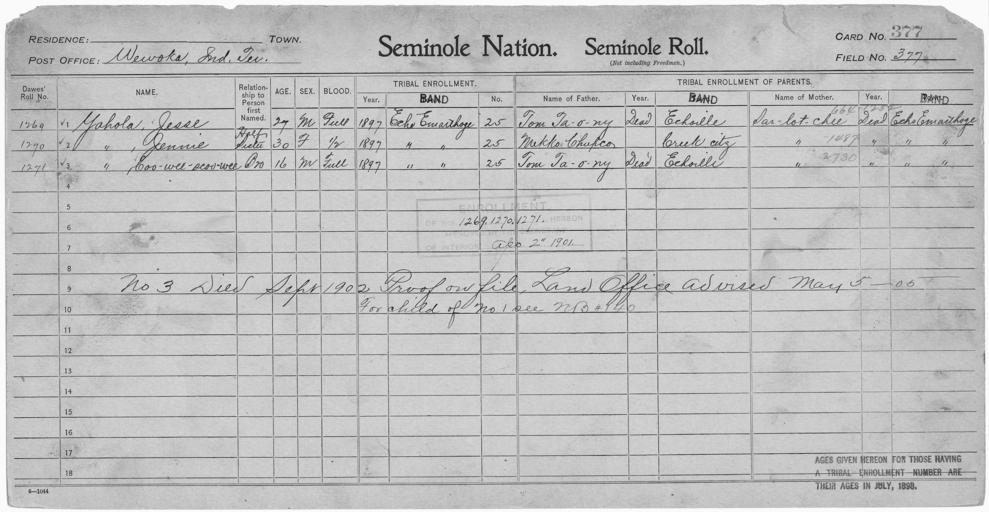 RESIDENCE: TOWN.
POST OFFICE: Wewoka, Ind. Ter.
Seminole Nation. Seminole Roll.
(Not including Freedmen.)
CARD NO. 377
FIELD NO. 377
Dawes' Roll No. NAME. Relationship to Person first Named. AGE. SEX. BLOOD. TRIBAL ENROLLMENT. TRIBAL ENROLLMENT OF PARENTS.
Year. BAND No. Name of Father. Year. BAND Name of Mother. Year. BAND
1269 1 Yahola, Jesse 27 M Full 1897 Echo Emarthoge 25 Tom Ta-o-ny Dead Echoille Sar-lot-chee Dead Echo Emarthoge
1270 2 " , Jennie Half Sister 30 F 1/2 1897 " " 25 Mekko Chupco Creek city " 1487 " " "
1271 3 " , Coo-wee-scoo-wee Bro 16 M Full 1897 " " 25 Tom Ta-o-ny Dead Echoille " 2730 " " "
4
5
ENROLLMENT
6 OF HEREON
1269.1270.1271.
7 OF INTERIOR
2" 1901.
8
9 No 3 Died Sept 1902 Proof on file, Land Office advised May 5-05
10 For child of No 1 see NB #
11
12
13
14
15
16
17
18
AGES GIVEN HEREON FOR THOSE HAVING
A TRIBAL ENROLLMENT NUMBER ARE
THEIR AGES IN JULY, 1898.
6-1044